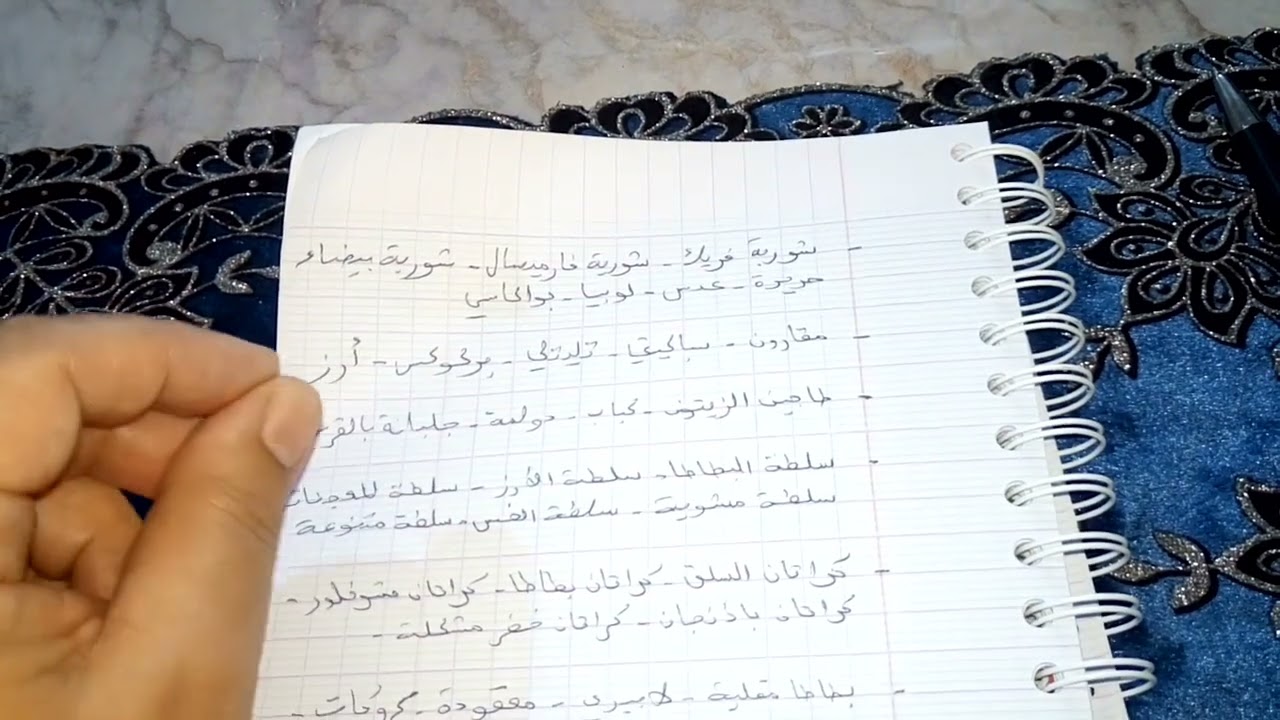 - شوربة فريك - شوربة فارميسال - شوربة بيضاء
حريرة - عدس - لوبيا - بوالحاسي
- مقارون - سباكيتي - تليتلي - بركوكس - أرز
- طاجين الزيتون - كباب - دولمة - جلبانة بالقر
- سلطة البطاطا - سلطة الأرز - سلطة المعجنات
سلطة مشوية - سلطة الخس - سلطة متنوعة
- كراتان السلق - كراتان بطاطا - كراتان شوفلور -
كراتان باذنجان - كراتان خضر مشكلة -
- بطاطا مقلية - لابيري - معقودة - كروكات -